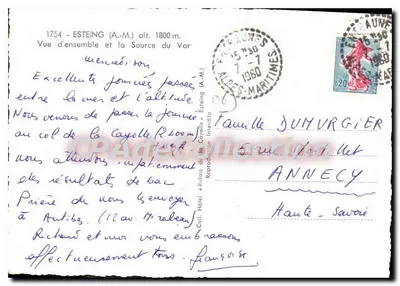 1754 - ESTEING (A.-M.) alt. 1800 m.
Vue d'ensemble et la Source du Var
Excellente journée passée
entre la mer et l'altitude
Nous venons de passer la journée
au col de la Cayolle
nous attendons impatiemment
des résultats de bac
Prière de nous les envoyer
à Antibes (12 av Mirabeau)
Richard et moi vous embrassons
affectueusement tous. Françoise
Coll. Hôtel « Relais de la Cayolle » Esteing (A.-M.)
Reproduction Interdite
15 H 30
7 - 7
1960
ALPES-MARITIMES
0,20
Famille DUMURGIER
ANNECY
Haute-Savoie